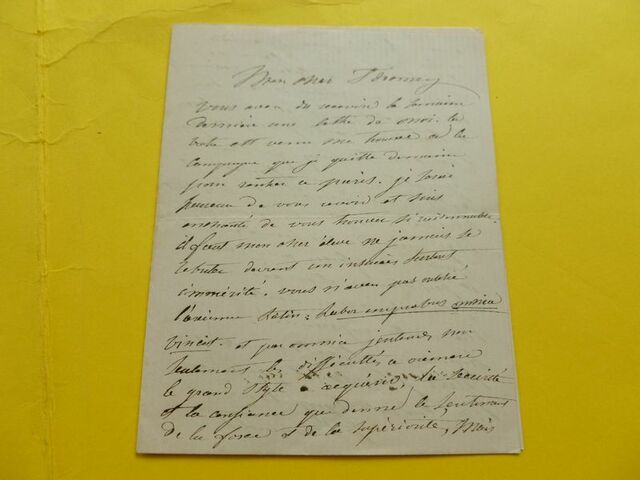 Mon cher
vous avez du recevoir la semaine
dernière une lettre de moi. la
votre est venue me trouver à la
campagne que je quitte demain
pour rentrer a paris. je serai
heureux de vous revoir et suis
enchanté de vous trouver si raisonnable.
il faut mon cher élève ne jamais se
rebuter devant un insuccès surtout
immérité. vous n'avez pas oublié
l'axiome latin: Labor improbus omnia
vincit. et par omnia j'entends, non
seulement les difficultés a vaincre
le grand style a acquérir, la sécurité
et la confiance que donne le sentiment
de la force et de la supériorité, Mais